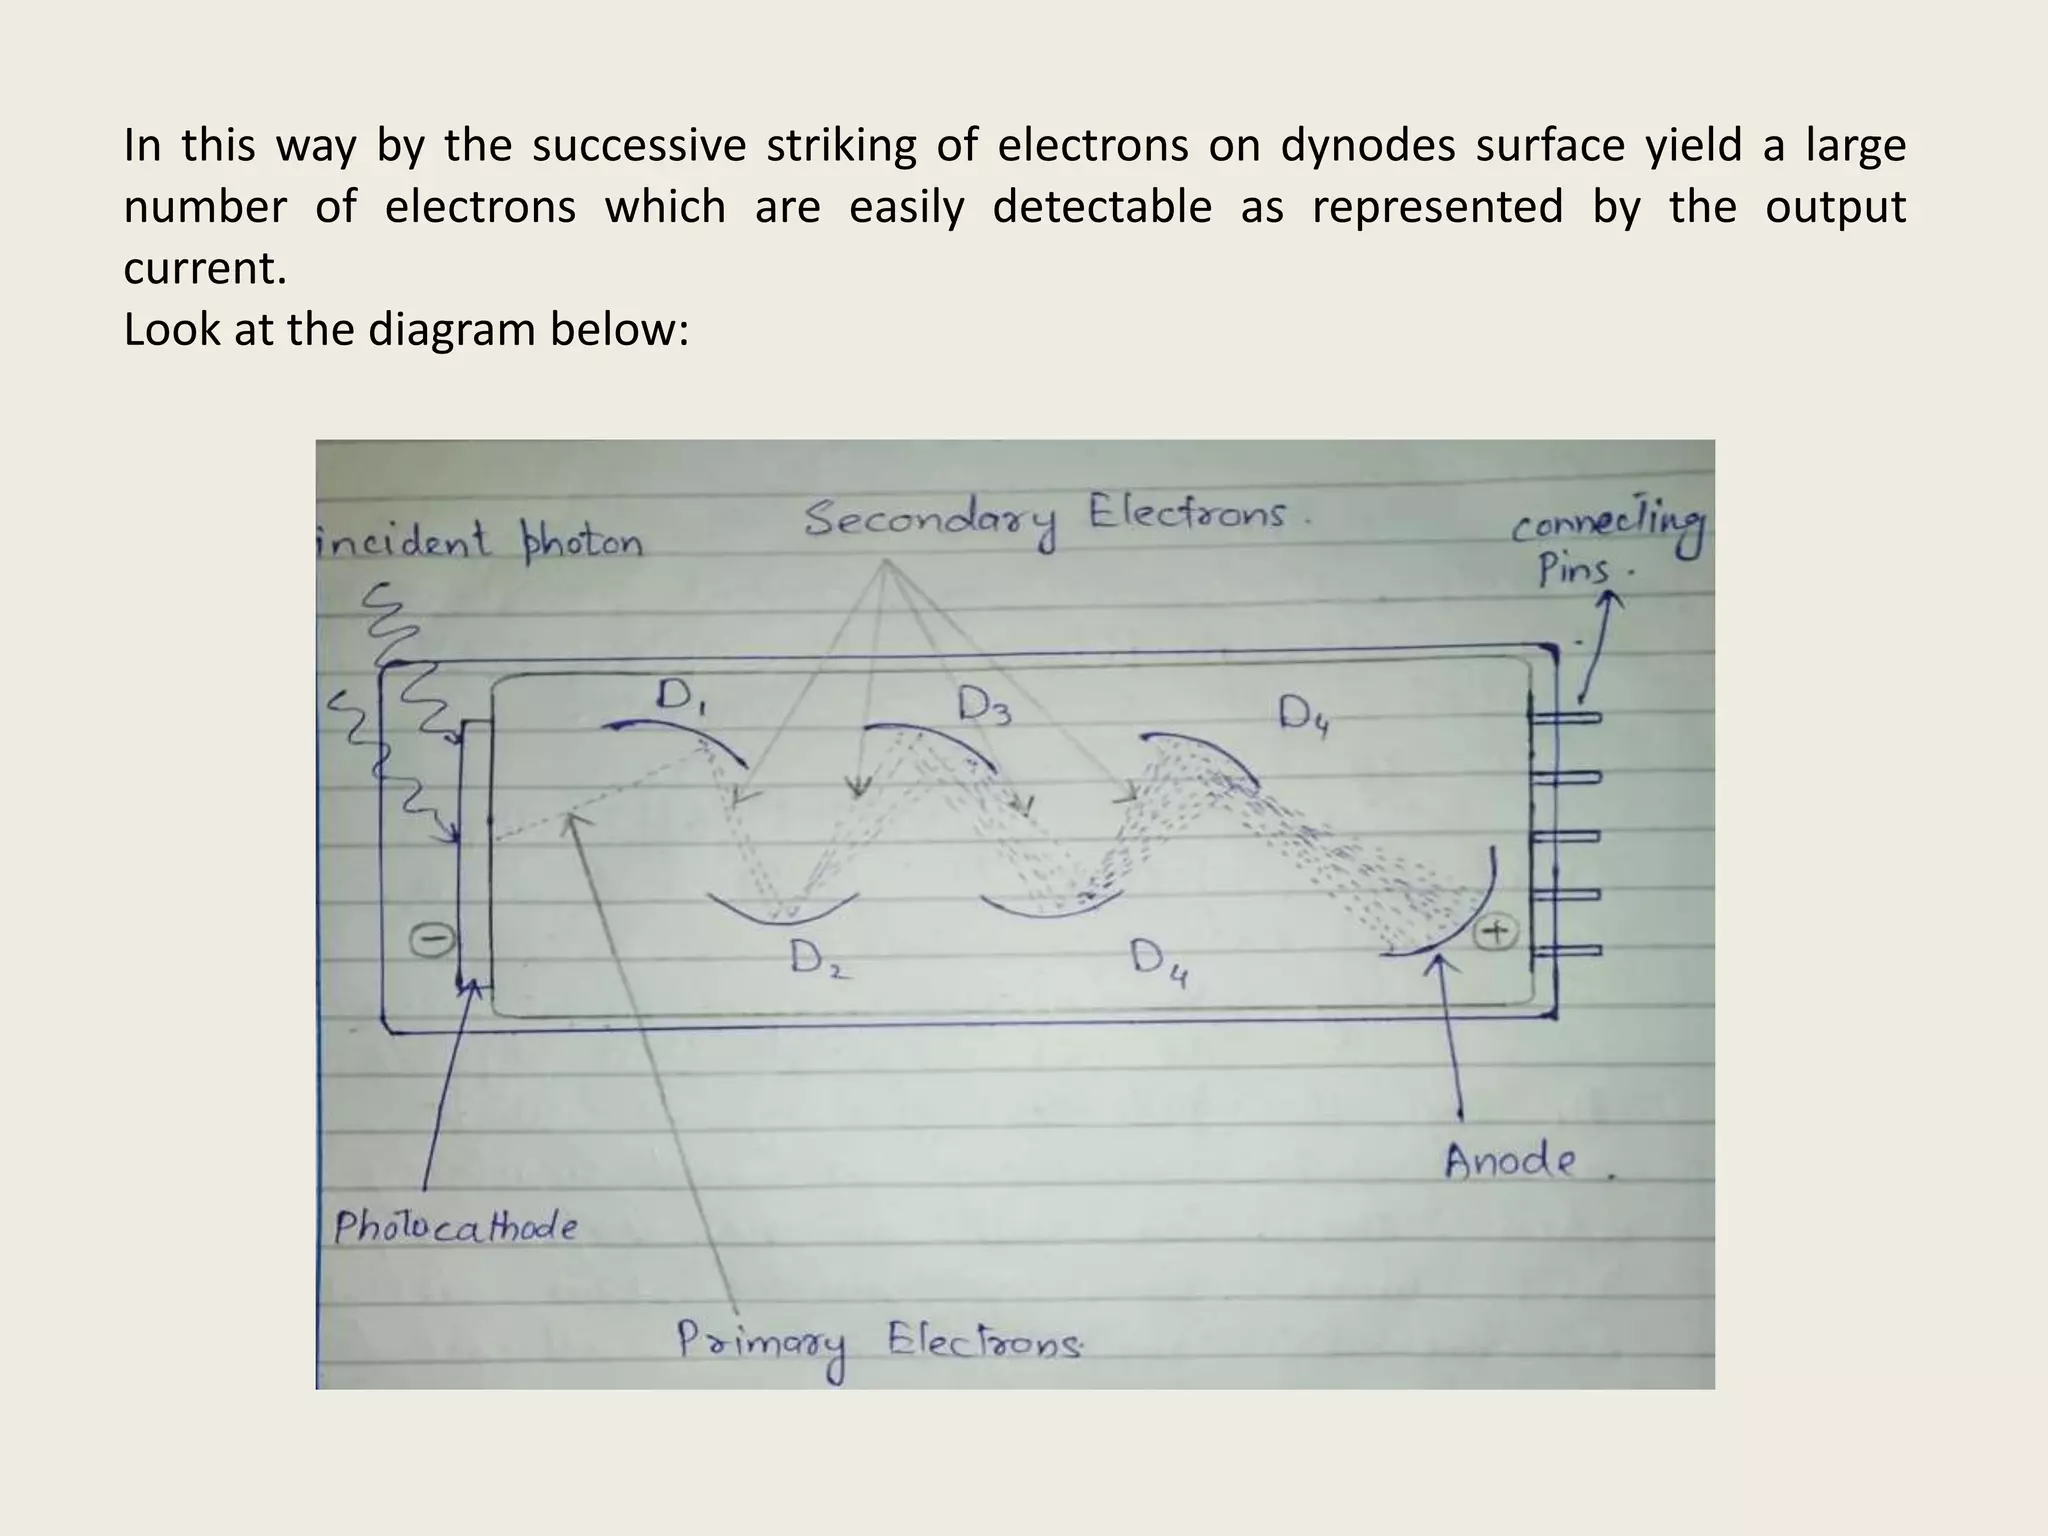 In this way by the successive striking of electrons on dynodes surface yield a large
number of electrons which are easily detectable as represented by the output
current.
Look at the diagram below:
incident photon
Secondary Electrons.
connecting
Pins.
D1
D3
D4
D2
D4
Anode.
Photocathode
Primary Electrons.